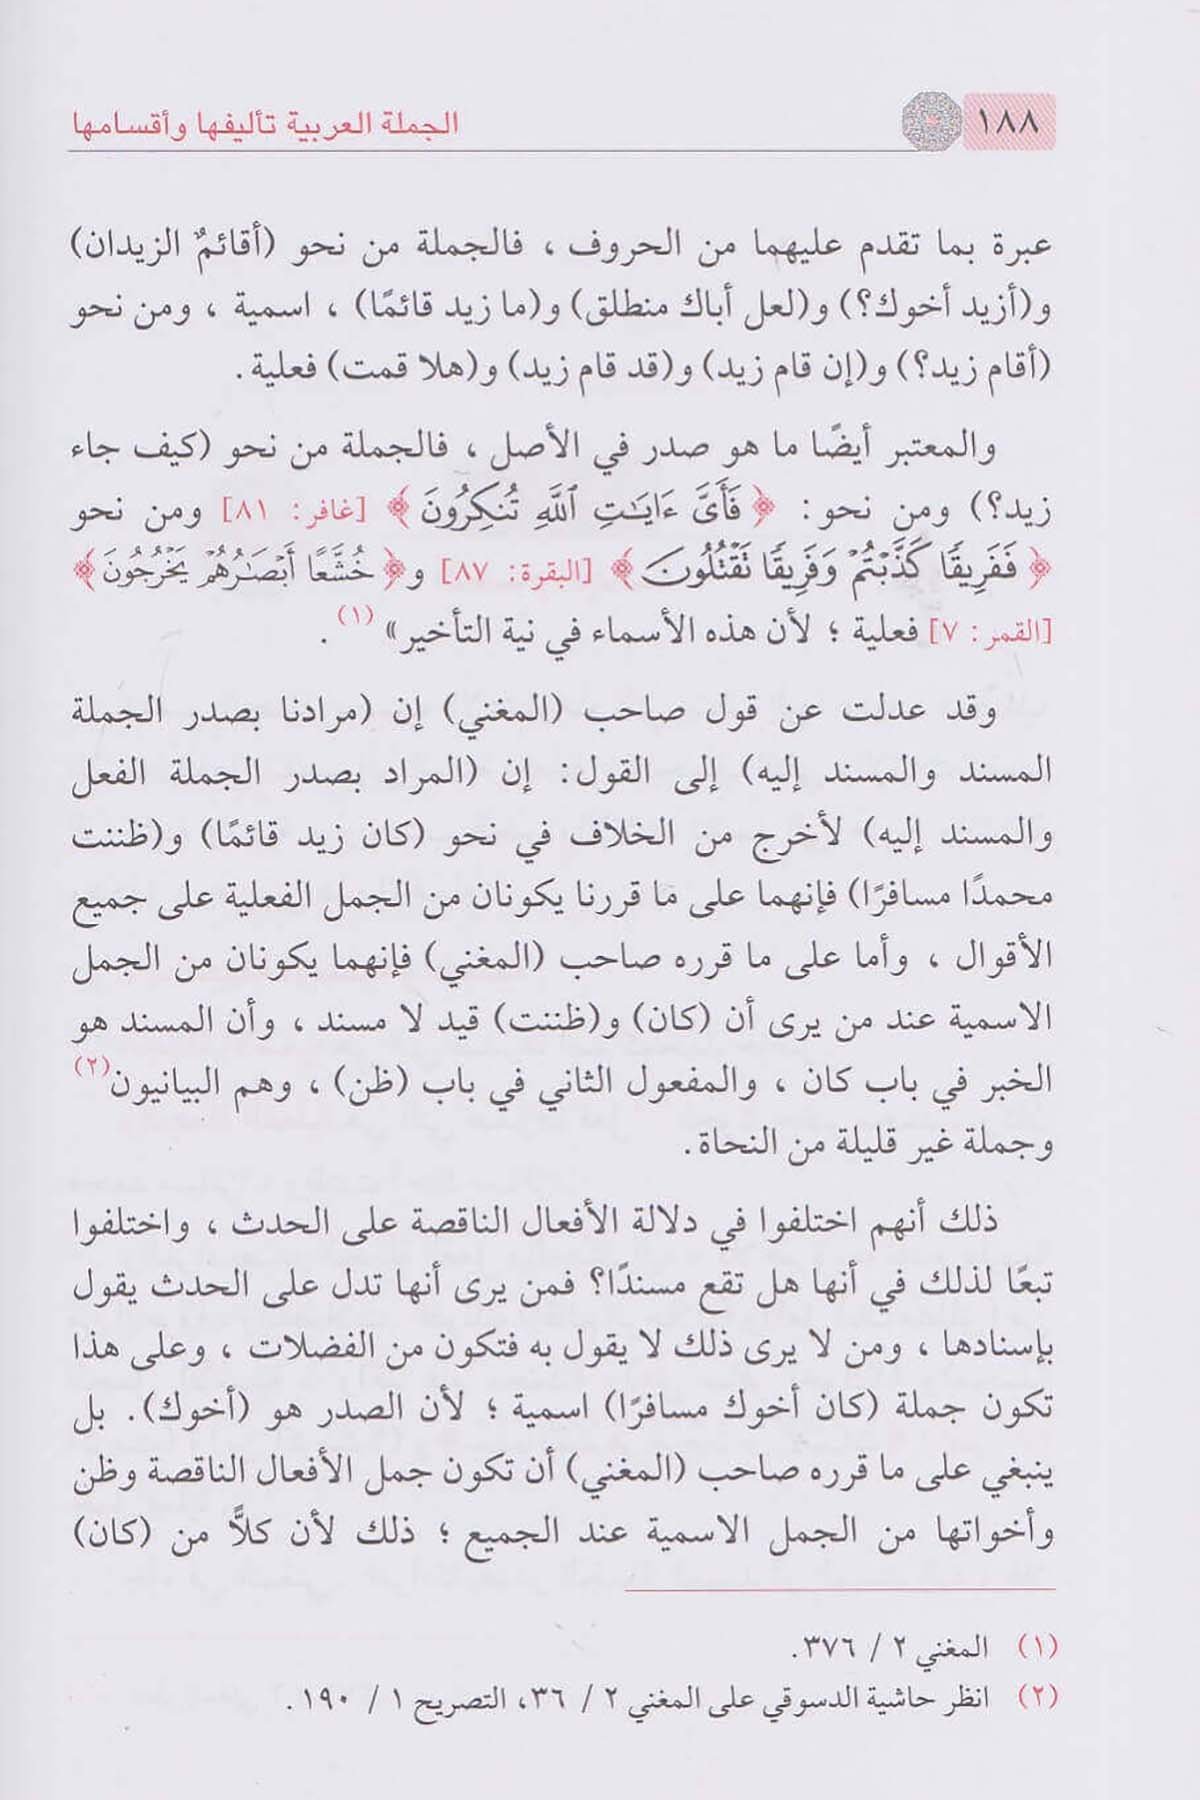 ١٨٨ الجملة العربية تأليفها وأقسامها
عبرة بما تقدم عليهما من الحروف ، فالجملة من نحو (أقائمٌ الزيدان)
و(أزيد أخوك؟) و(لعل أباك منطلق) و(ما زيد قائمًا) ، اسمية ، ومن نحو
(أقام زيد؟) و(إن قام زيد) و(قد قام زيد) و(هلا قمت) فعلية .
والمعتبر أيضًا ما هو صدر في الأصل ، فالجملة من نحو (كيف جاء
زيد؟) ومن نحو: ﴿فَأَىَّ ءَايَـٰتِ ٱللَّهِ تُنكِرُونَ﴾ [غافر: ٨١] ومن نحو
﴿فَفَرِيقًا كَذَّبْتُمْ وَفَرِيقًا نَقْتُلُونَ﴾ [البقرة: ٨٧] و﴿خُشَّعًا أَبْصَـٰرُهُمْ يَخْرُجُونَ﴾
[القمر: ٧] فعلية ؛ لأن هذه الأسماء في نية التأخير» (١) .
وقد عدلت عن قول صاحب (المغني) إن (مرادنا بصدر الجملة
المسند والمسند إليه) إلى القول: إن (المراد بصدر الجملة الفعل
والمسند إليه) لأخرج من الخلاف في نحو (كان زيد قائمًا) و(ظننت
محمدًا مسافرًا) فإنهما على ما قررنا يكونان من الجمل الفعلية على جميع
الأقوال ، وأما على ما قرره صاحب (المغني) فإنهما يكونان من الجمل
الاسمية عند من يرى أن (كان) و(ظننت) قيد لا مسند ، وأن المسند هو
الخبر في باب كان ، والمفعول الثاني في باب (ظن) ، وهم البيانيون(٢)
وجملة غير قليلة من النحاة .
ذلك أنهم اختلفوا في دلالة الأفعال الناقصة على الحدث ، واختلفوا
تبعًا لذلك في أنها هل تقع مسندًا؟ فمن يرى أنها تدل على الحدث يقول
بإسنادها ، ومن لا يرى ذلك لا يقول به فتكون من الفضلات ، وعلى هذا
تكون جملة (كان أخوك مسافرًا) اسمية ؛ لأن الصدر هو (أخوك). بل
ينبغي على ما قرره صاحب (المغني) أن تكون جمل الأفعال الناقصة وظن
وأخواتها من الجمل الاسمية عند الجميع ؛ ذلك لأن كلاًّ من (كان)
(١) المغني ٢ / ٣٧٦.
(٢) انظر حاشية الدسوقي على المغني ٢ / ٣٦، التصريح ١ / ١٩٠ .